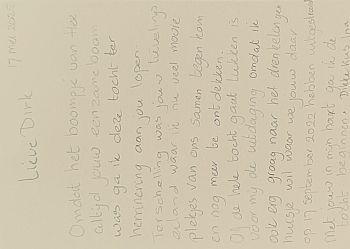 17 mei 2025
Lieve Dirk
Omdat het boompje van Hee
altijd jouw eenzame boom
was ga ik deze tocht ter
herinnering aan jou lopen.
Terschelling was jouw lievelings
eiland waar ik nu veel mooie
plekjes van ons samen tegen kom
en nog meer be ontdekken.
Of de hele tocht gaat lukken is
voor mij de uitdaging omdat ik
ook erg graag naar het drenkelingen
huisje wil waar we jouw daar
op 17 september 2022 hebben uitgestrooid
Met jouw in mijn hart ga ik de
tocht beginnen. Dikke kus